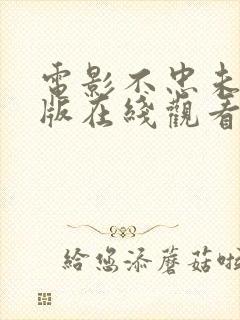 電影不忠未
版在綫觀看
給您添蘑菇啦